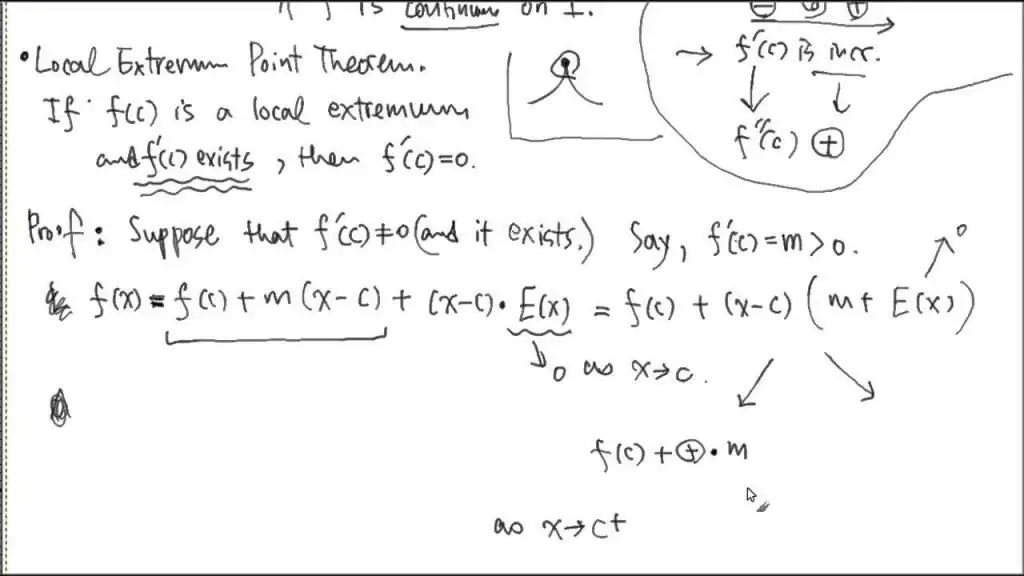 f is continuous on I.
⊖ 0 ⊕
• Local Extremum Point Theorem.
→ f'(c) is incr.
If f(c) is a local extremum
f''(c) ⊕
and f'(c) exists, then f'(c)=0.
Proof: Suppose that f'(c)≠0 (and it exists.) Say, f'(c)=m>0.
f(x) = f(c) + m(x-c) + (x-c)·E(x) = f(c) + (x-c)(m+E(x))
0
→0 as x→c.
f(c)+⊕·m
as x→c+